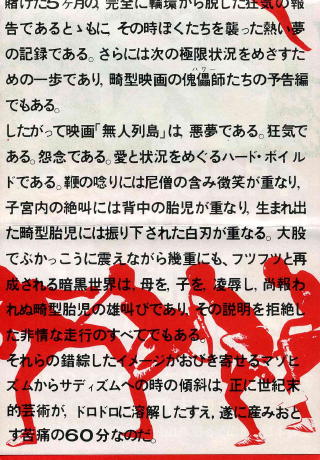 賭けた5ヶ月の、完全に輪環から脱した狂気の報
告であるとゝもに、その時ぼくたちを襲った熱い夢
の記録である。さらには次の極限状況をめざすた
めの一歩であり、畸型映画の傀儡師たちの予告編
でもある。
したがって映画「無人列島」は、悪夢である。狂気で
ある。怨念である。愛と状況をめぐるハード・ボイル
ドである。鞭の唸りには尼僧の含み微笑が重なり、
子宮内の絶叫には背中の胎児が重なり、生まれ出
た畸型胎児には振り下された白刃が重なる。大股
でぶかっこうに震えながら幾重にも、フツフツと再
成される暗黒世界は、母を、子を、凌辱し、尚報わ
れぬ畸型胎児の雄叫びであり、その説明を拒絶し
た非情な走行のすべてでもある。
それらの錯綜したイメージがおびき寄せるマゾヒ
ズムからサディズムへの時の傾斜は、正に世紀末
的芸術が、ドロドロに溶解したすえ、遂に産みおと
す苦痛の60分なのだ。